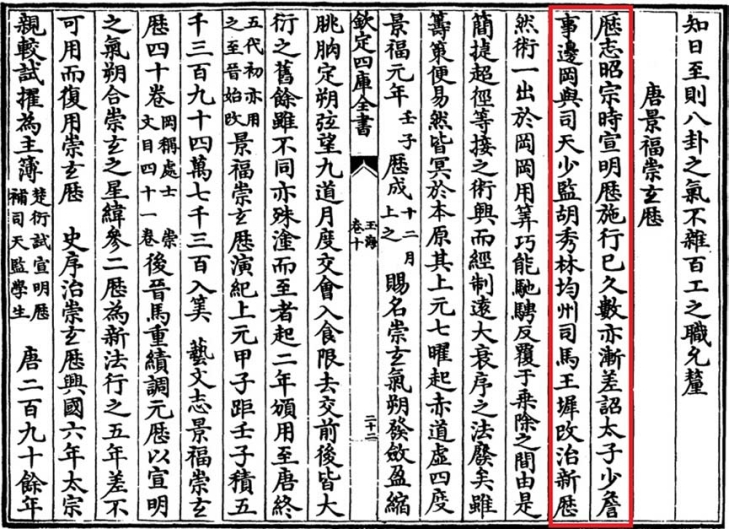 知日至則八卦之氣不雜百工之職允釐
唐景福崇玄厯
厯志昭宗時宣明厯施行已久數亦漸差詔太子少詹
事邊岡與司天少監胡秀林均州司馬王墀改治新厯
然術一出於岡岡用筭巧能馳騁反覆于乗除之間由是
簡捷超徑等接之術興而經制遠大衰序之法廢矣雖
籌策便易然皆冥於本原其上元七曜起赤道虛四度
景福元年壬子厯成十二月上之 賜名崇玄氣朔發斂盈縮
欽定四庫全書 玉海 卷十 二十二
朓朒定朔弦望九道月度交會入食限去交前後皆大
衍之舊餘雖不同亦殊塗而至者起二年頒用至唐終
五代初亦用之至晉始改 景福崇玄厯演紀上元甲子距壬子積五
千三百九十四萬七千三百八筭 藝文志景福崇玄
厯四十卷岡稱處士 崇文目四十一卷 後晉馬重績調元厯以宣明
之氣朔合崇玄之星緯參二厯為新法行之五年差不
可用而復用崇玄厯 史序治崇玄厯興國六年太宗
親較試擢為主簿楚衍試宣明厯補司天監學生 唐二百九十餘年